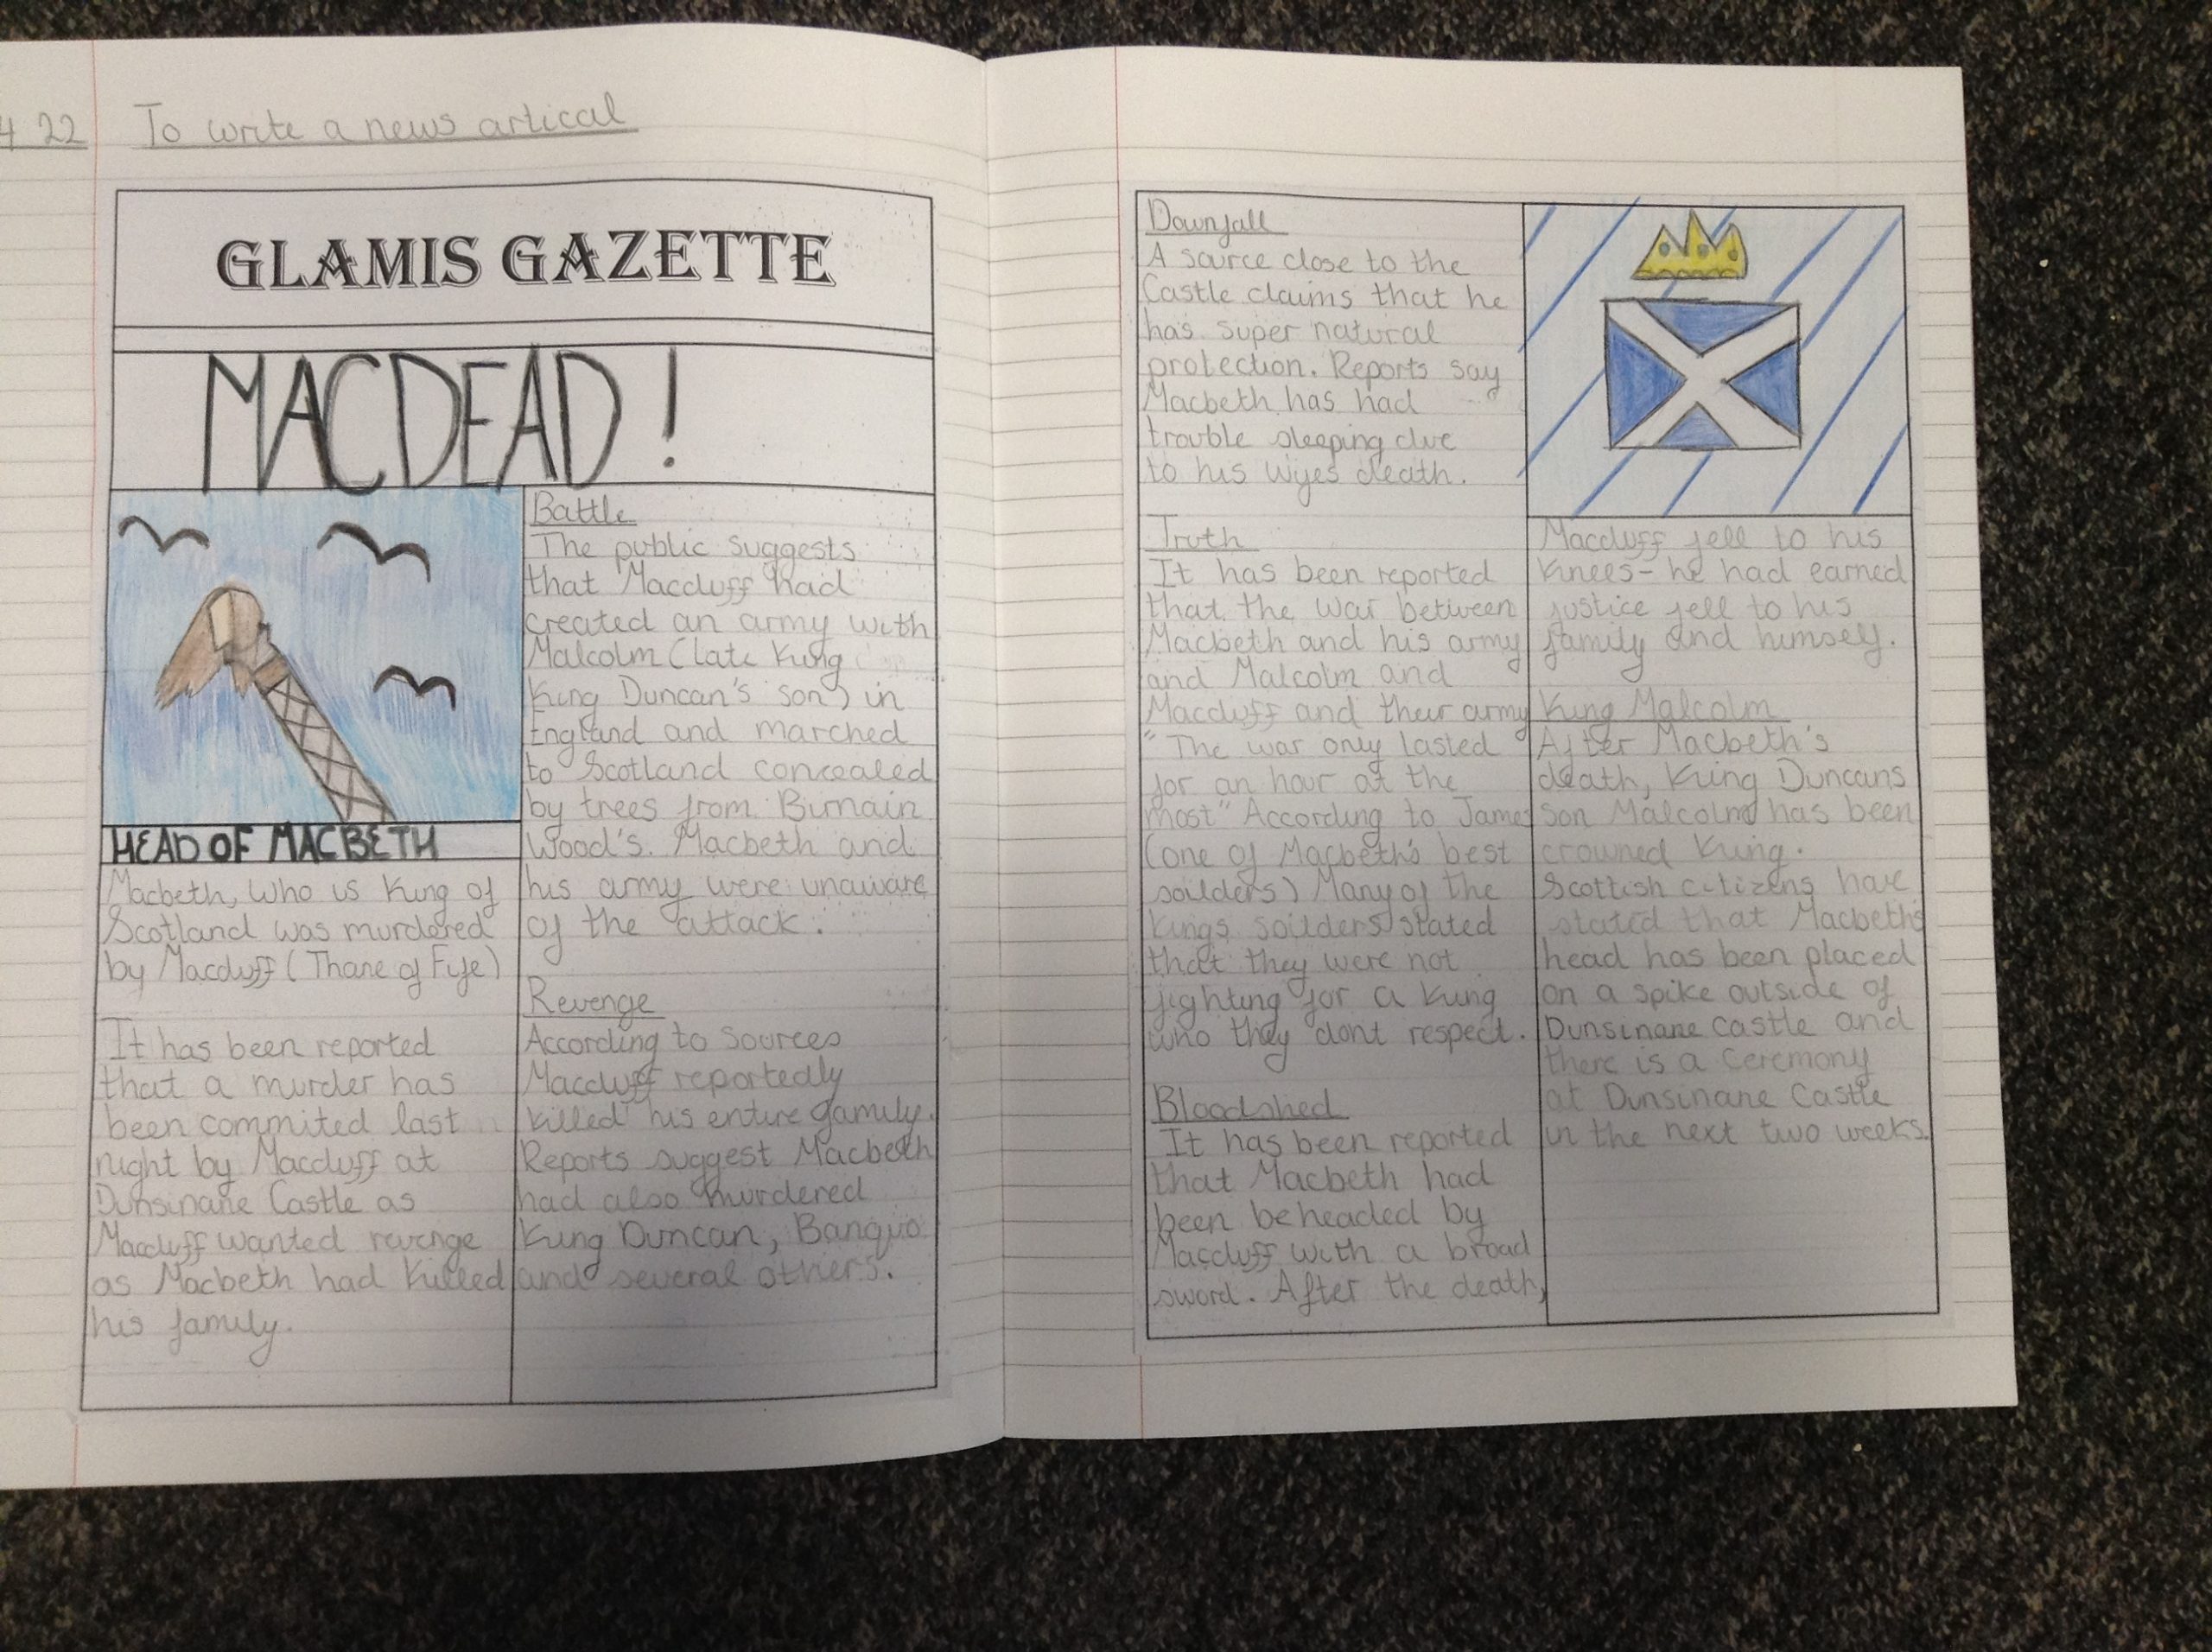 4 22
To write a news artical
GLAMIS GAZETTE
MACDEAD!
HEAD OF MACBETH
Macbeth, Who is King of
Scotland was murdered
by Macduff (Thane of Fife)
It has been reported
that a murder has
been commited last
night by Macduff at
Dunsinane Castle as
Macduff wanted revenge
as Macbeth had killed
his family.
Battle
The public suggests
that Macduff had
created an army with
Malcolm (late King
King Duncan's son) in
England and marched
to Scotland concealed
by trees from Birnain
Wood's. Macbeth and
his army were unaware
of the attack.
Revenge
According to Sources
Macduff reportedly
killed his entire family.
Reports suggest Macbeth
had also murdered
King Duncan, Banquo
and several others.
Downfall
A source close to the
Castle claims that he
has super natural
protection. Reports say
Macbeth has had
trouble sleeping due
to his wifes death.
Truth
It has been reported
that the war between
Macbeth and his army
and Malcolm and
Macduff and their army
"The war only lasted
for an hour at the
most" According to James
(one of Macbeth's best
soilders) Many of the
kings soilders stated
that they were not
fighting for a king
who they dont respect.
Bloodshed
It has been reported
that Macbeth had
been beheaded by
Macduff with a broad
sword. After the death,
Macduff fell to his
knees- he had earned
justice fell to his
family and himself.
King Malcolm
After Macbeth's
death, King Duncans
son Malcolm has been
crowned King.
Scottish citizens have
stated that Macbeth's
head has been placed
on a spike outside of
Dunsinane castle and
there is a ceremony
at Dunsinane Castle
in the next two weeks.